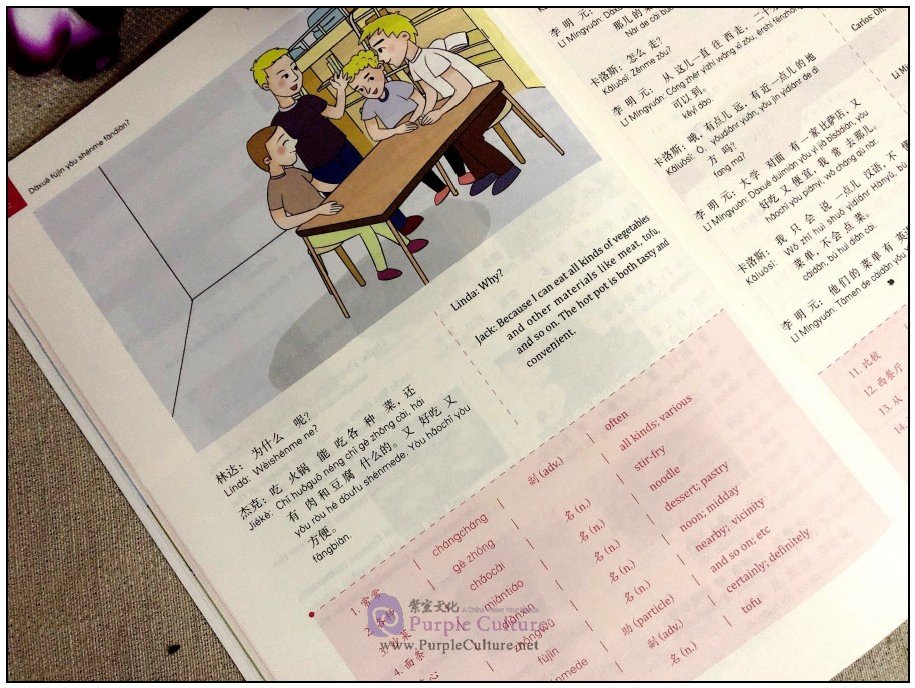 Dàxué fùjìn yǒu shénme fàndiàn?
林达： 为什么 呢?
Líndá: Wèishénme ne?
杰克：吃 火锅 能 吃 各 种 菜，还
Jiékè: Chī huǒguō néng chī gè zhǒng cài, hái
有 肉 和 豆 腐 什么的。又 好吃 又
yǒu ròu hé dòufu shénmede. Yòu hǎochī yòu
方便。
fāngbiàn.
Linda: Why?
Jack: Because I can eat all kinds of vegetables
and other materials like meat, tofu,
and so on. The hot pot is both tasty and
convenient.
1. 常常 chángcháng 副 (adv.) often
gè zhǒng all kinds; various
chǎocài 名 (n.) stir-fry
4. 面条 miàntiáo 名 (n.) noodle
diǎnxin 名 (n.) dessert; pastry
zhōngwǔ 名 (n.) noon; midday
fùjìn 名 (n.) nearby; vicinity
助 (particle) and so on; etc
副 (adv.) certainly; definitely
名 (n.) tofu
李 明 元：
Lǐ Míngyuán:
卡洛斯：怎么 走?
Kǎluòsī: Zěnme zǒu?
李 明 元： 从 这儿一直 往 西 走，二十分
Lǐ Míngyuán: Cóng zhèr yìzhí wǎng xī zǒu, èrshí fēnzhōng
可以 到。
kěyǐ dào.
卡洛斯：哦，有点儿 远，有 近一点儿 的 地
Kǎluòsī: Ò, yǒudiǎnr yuǎn, yǒu jìn yìdiǎnr de dì
方 吗?
fang ma?
李 明 元：大学 对面 有 一家 比萨店，又
Lǐ Míngyuán: Dàxué duìmiàn yǒu yì jiā bǐsàdiàn, yòu
好吃 又 便宜，我 常 去 那儿。
hǎochī yòu piányi, wǒ cháng qù nàr.
卡洛斯： 我 只 会 说 一点儿 汉语，不
Kǎluòsī: Wǒ zhǐ huì shuō yìdiǎnr Hànyǔ, bú
菜单，不会 点 菜。
càidān, bú huì diǎn cài.
李 明 元： 他们 的 菜单 有 英
Lǐ Míngyuán: Tāmen de càidān yǒu
Carlos:
11. 比较
12. 西餐厅
13. 从
14.
紫宸文化
Purple Culture
www.PurpleCulture.net